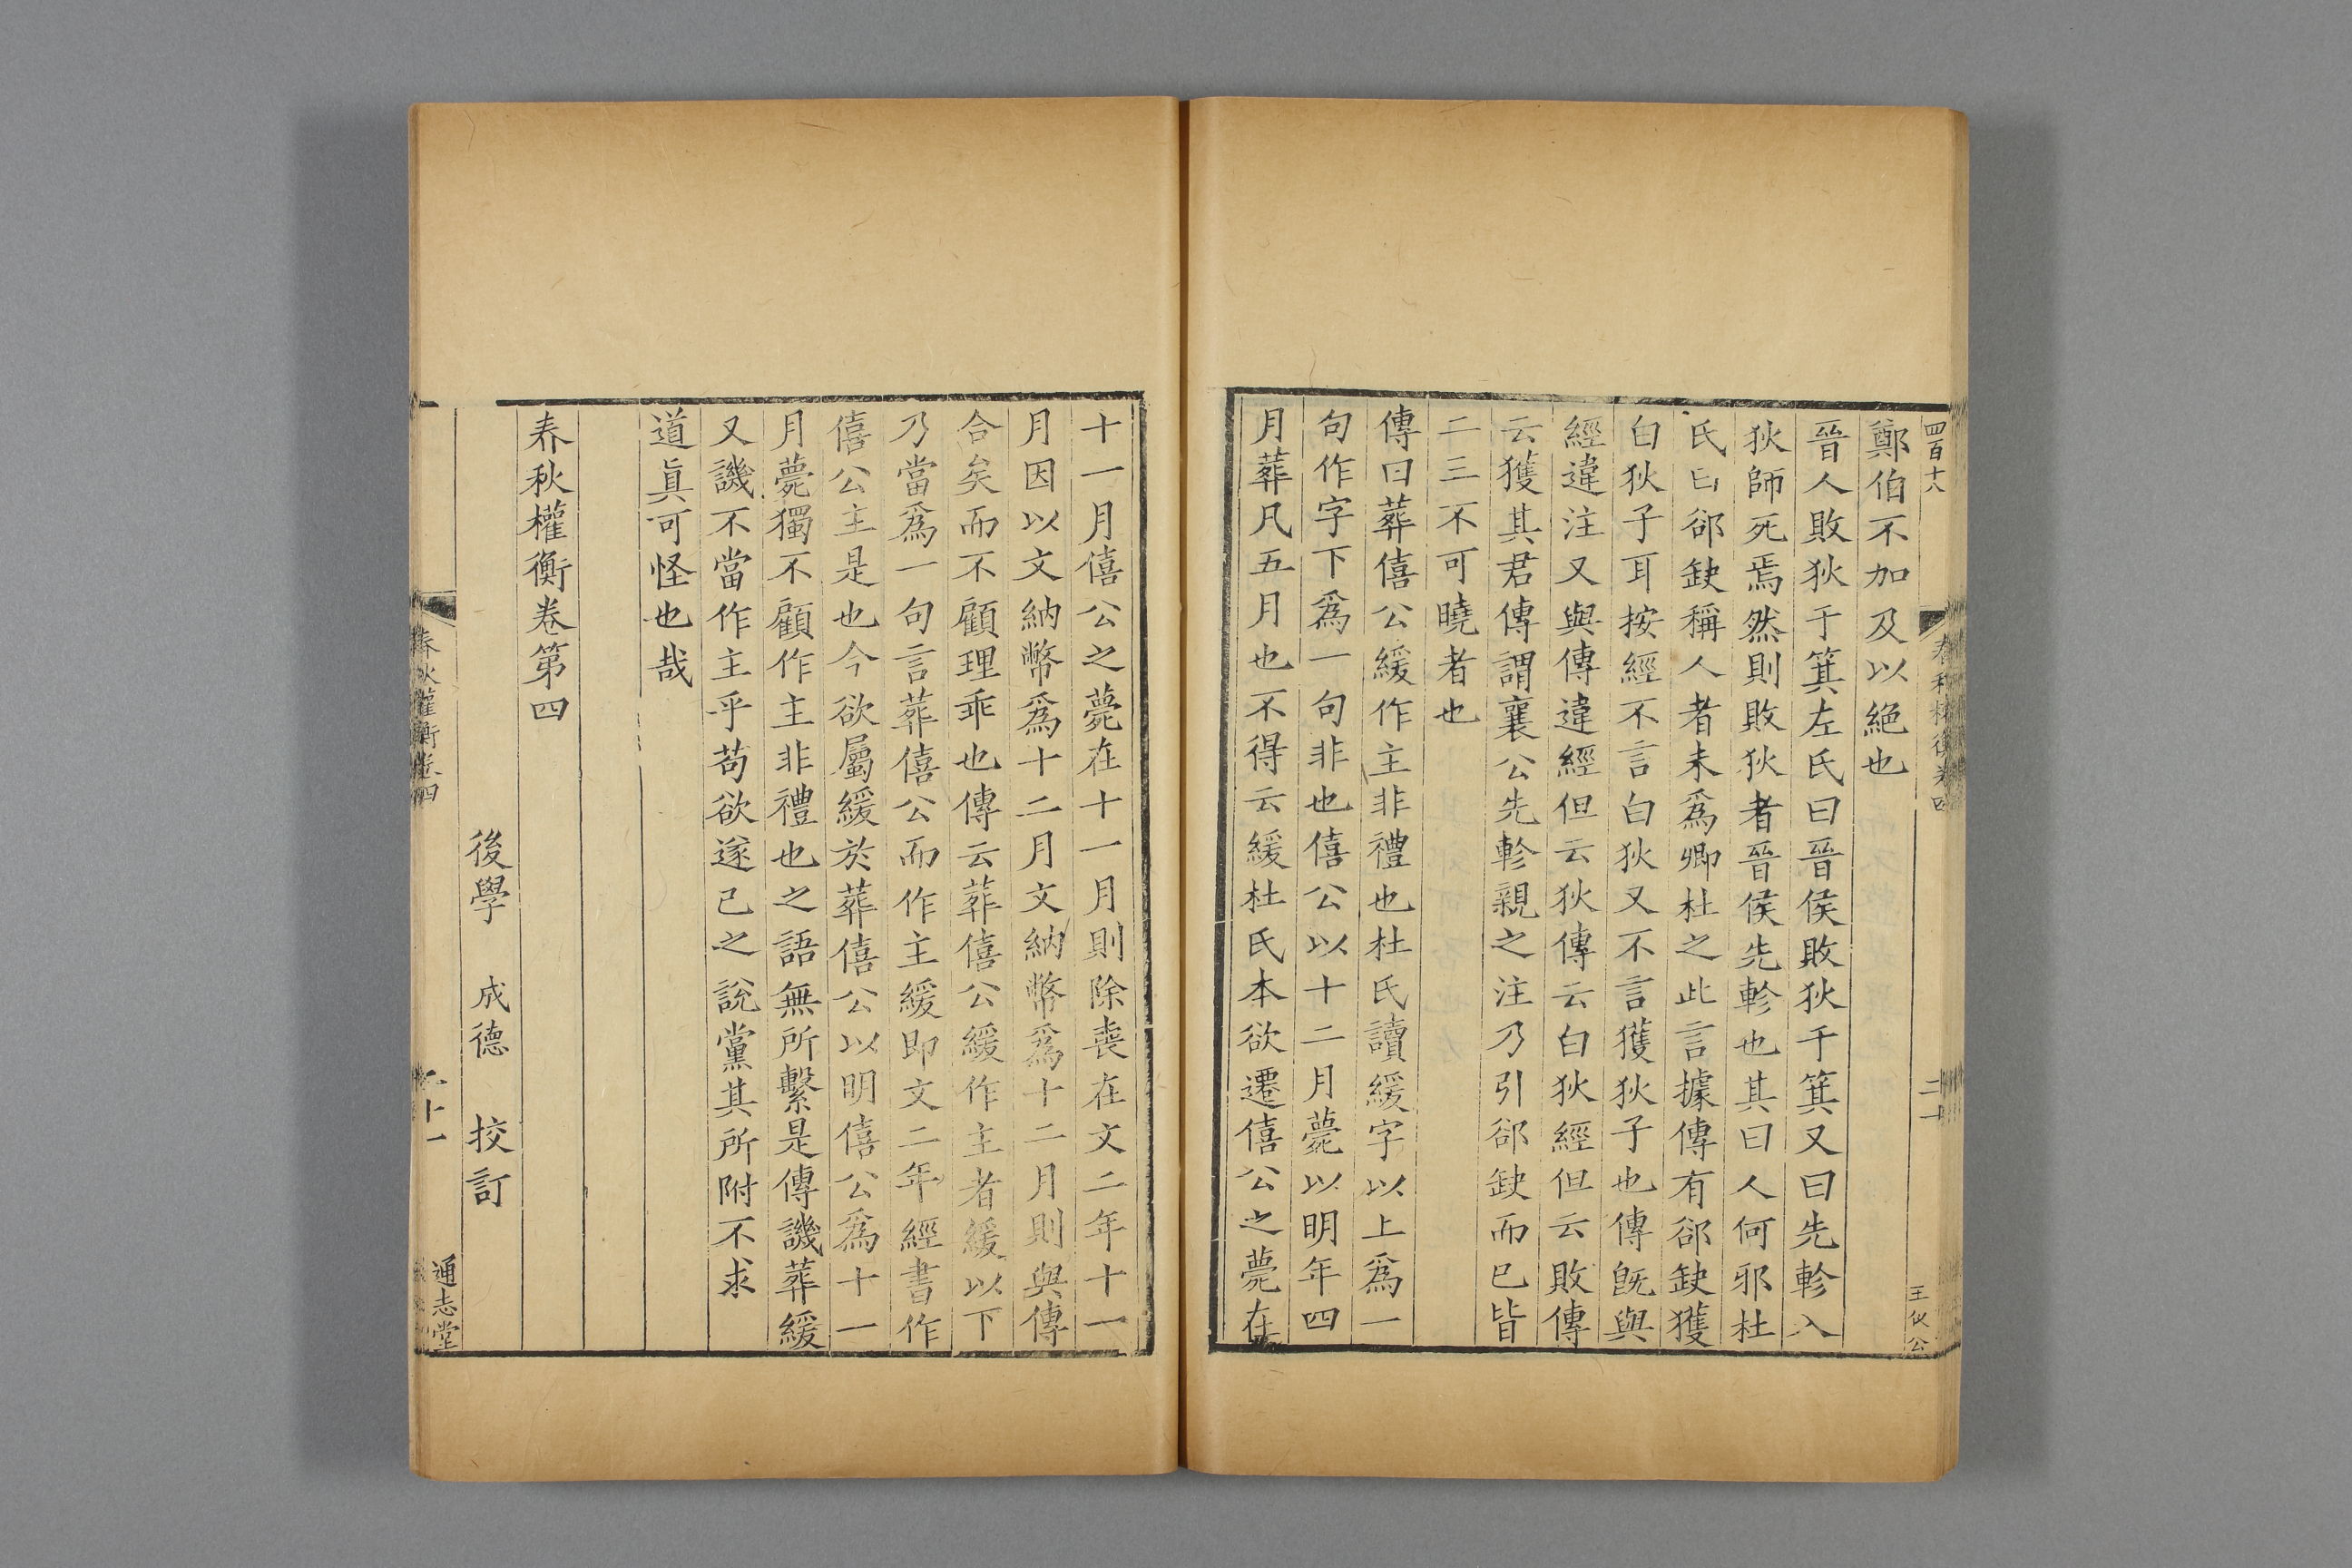 四百十八
春秋權衡卷四
二十
王仪公
鄭伯不加及以絕也
晉人敗狄于箕左氏曰晉侯敗狄于箕又曰先軫入
狄師死焉然則敗狄者晉侯先軫也其曰人何邪杜
氏曰郤缺稱人者未爲卿杜之此言據傳有郤缺獲
白狄子耳按經不言白狄又不言獲狄子也傳旣與
經違注又與傳違經但云狄傳云白狄經但云敗傳
云獲其君傳謂襄公先軫親之注乃引郤缺而已皆
二三不可曉者也
傳曰葬僖公緩作主非禮也杜氏讀緩字以上爲一
句作字下爲一句非也僖公以十二月薨以明年四
月葬凡五月也不得云緩杜氏本欲遷僖公之薨在
十一月僖公之薨在十一月則除喪在文二年十一
月因以文納幣爲十二月文納幣爲十二月則與傳
合矣而不顧理乖也傳云葬僖公緩作主者緩以下
乃當爲一句言葬僖公而作主緩即文二年經書作
僖公主是也今欲屬緩於葬僖公以明僖公爲十一
月薨獨不顧作主非禮也之語無所繫是傳譏葬緩
又譏不當作主乎苟欲遂己之說黨其所附不求
道眞可怪也哉
春秋權衡卷第四
後學 成德 挍訂
春秋權衡卷四
十一
通志堂